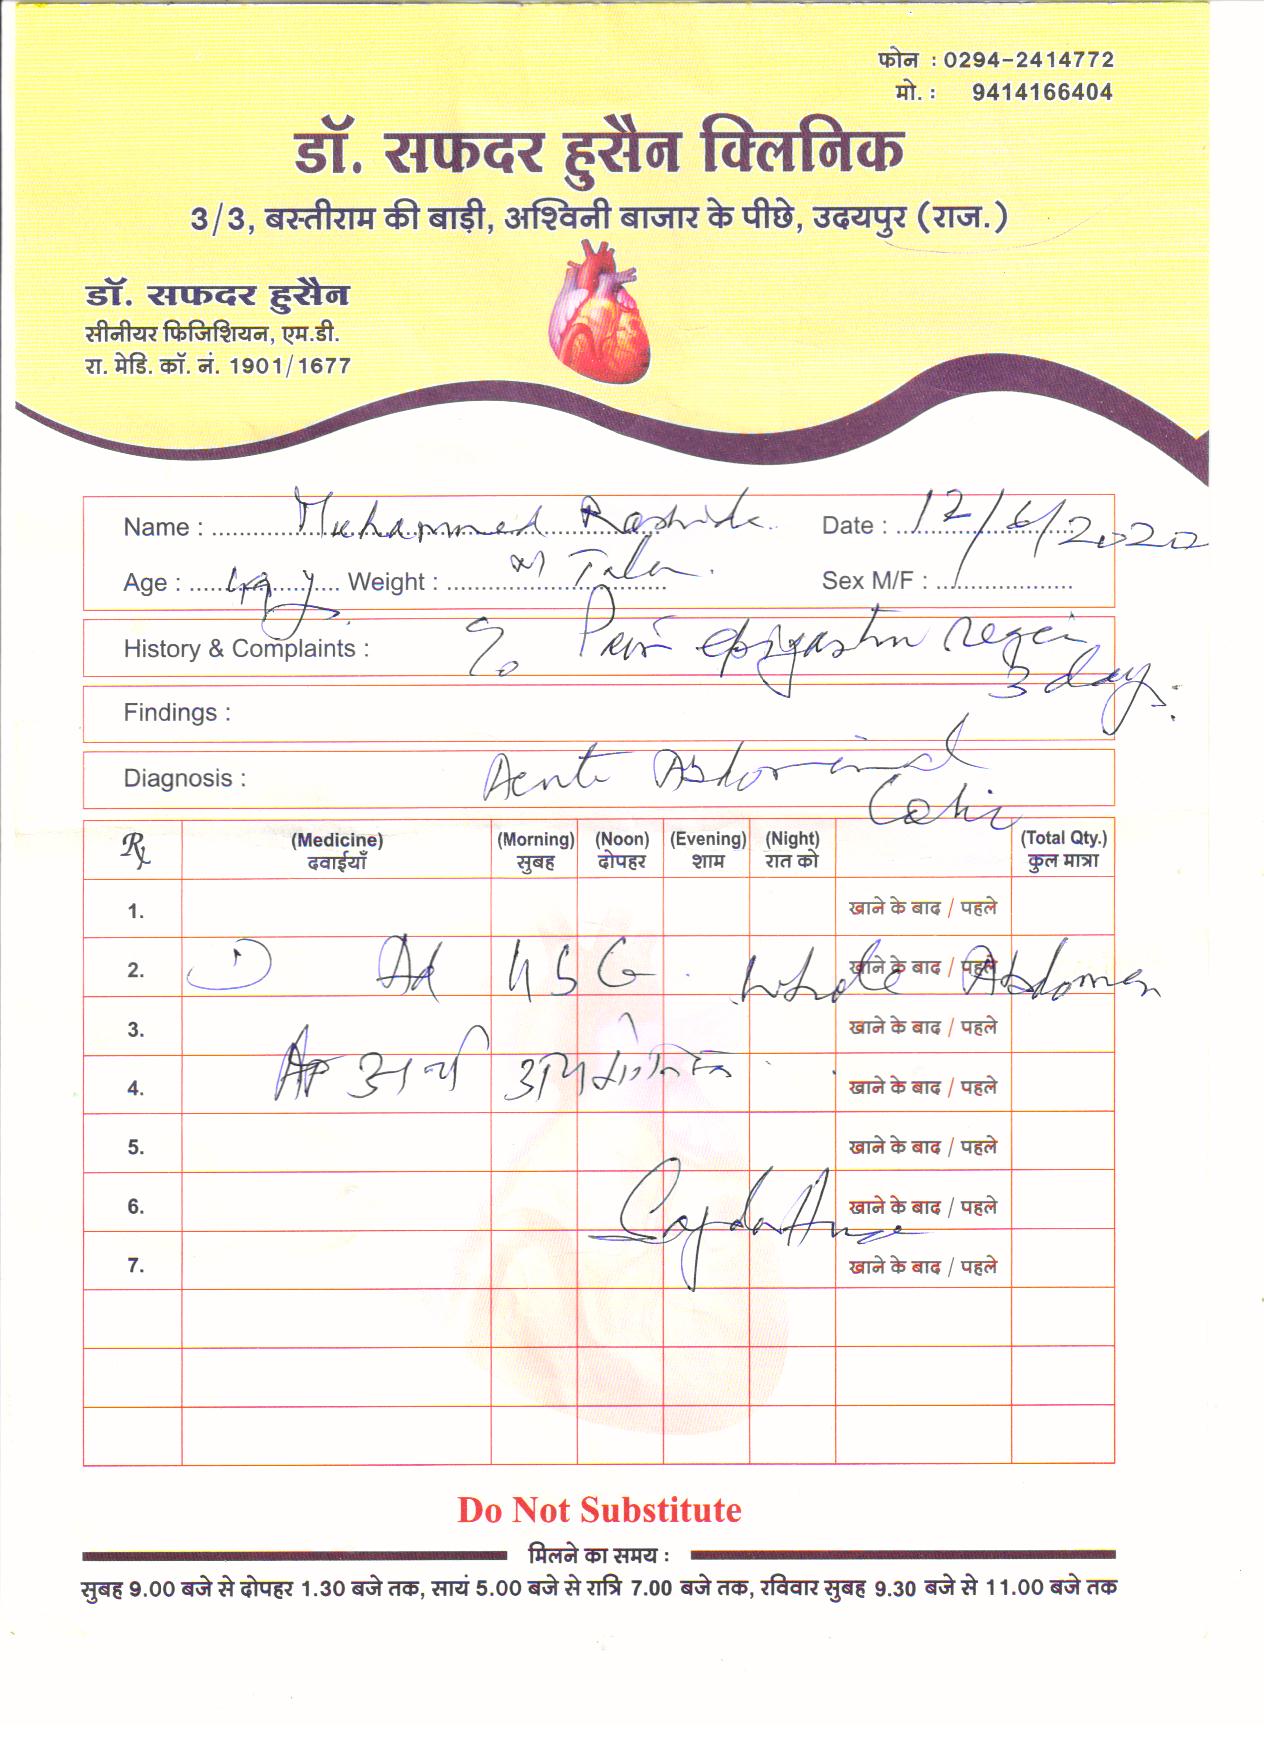 फोन : 0294-2414772
मो. : 9414166404
डॉ. सफदर हुसैन क्लिनिक
3/3, बस्तीराम की बाड़ी, अश्विनी बाजार के पीछे, उदयपुर (राज.)
डॉ. सफदर हुसैन
सीनीयर फिजिशियन, एम.डी.
रा. मेडि. कॉ. नं. 1901/1677
Name : Muhammed Date : 12/6/2020
Age : 49 y Weight : Sex M/F :
History & Complaints : C/o Pain
3 days.
Findings :
Diagnosis : Acute Abdominal
Colic
Rx (Medicine) (Morning) (Noon) (Evening) (Night) (Total Qty.)
दवाईयाँ सुबह दोपहर शाम रात को कुल मात्रा
1. खाने के बाद / पहले
2. खाने के बाद / पहले
Ad USG whole Abdomen
3. खाने के बाद / पहले
4. खाने के बाद / पहले
5. खाने के बाद / पहले
6. खाने के बाद / पहले
7. खाने के बाद / पहले
Do Not Substitute
मिलने का समय :
सुबह 9.00 बजे से दोपहर 1.30 बजे तक, सायं 5.00 बजे से रात्रि 7.00 बजे तक, रविवार सुबह 9.30 बजे से 11.00 बजे तक